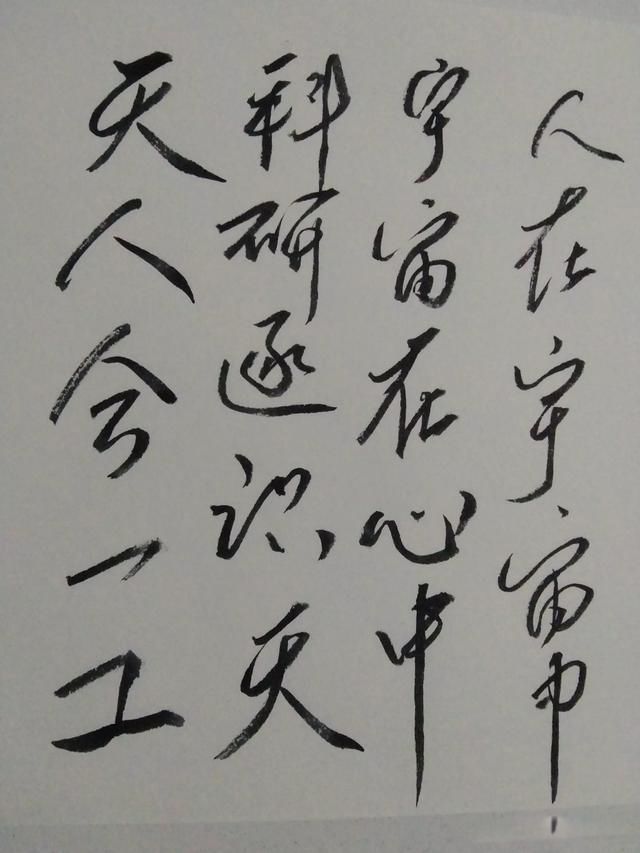 人在宇宙中
宇宙在心中
科研逐识天
天人合一工